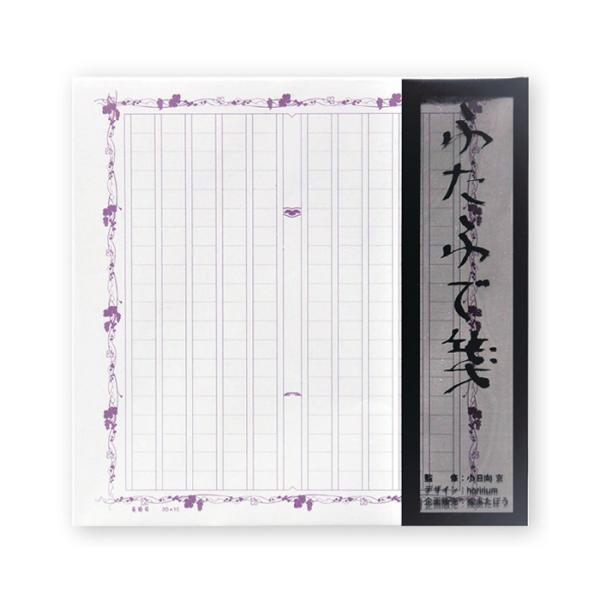 ふたふで箋
監　修：小日向 京
デザイン：horirium
企画販売：
20×10